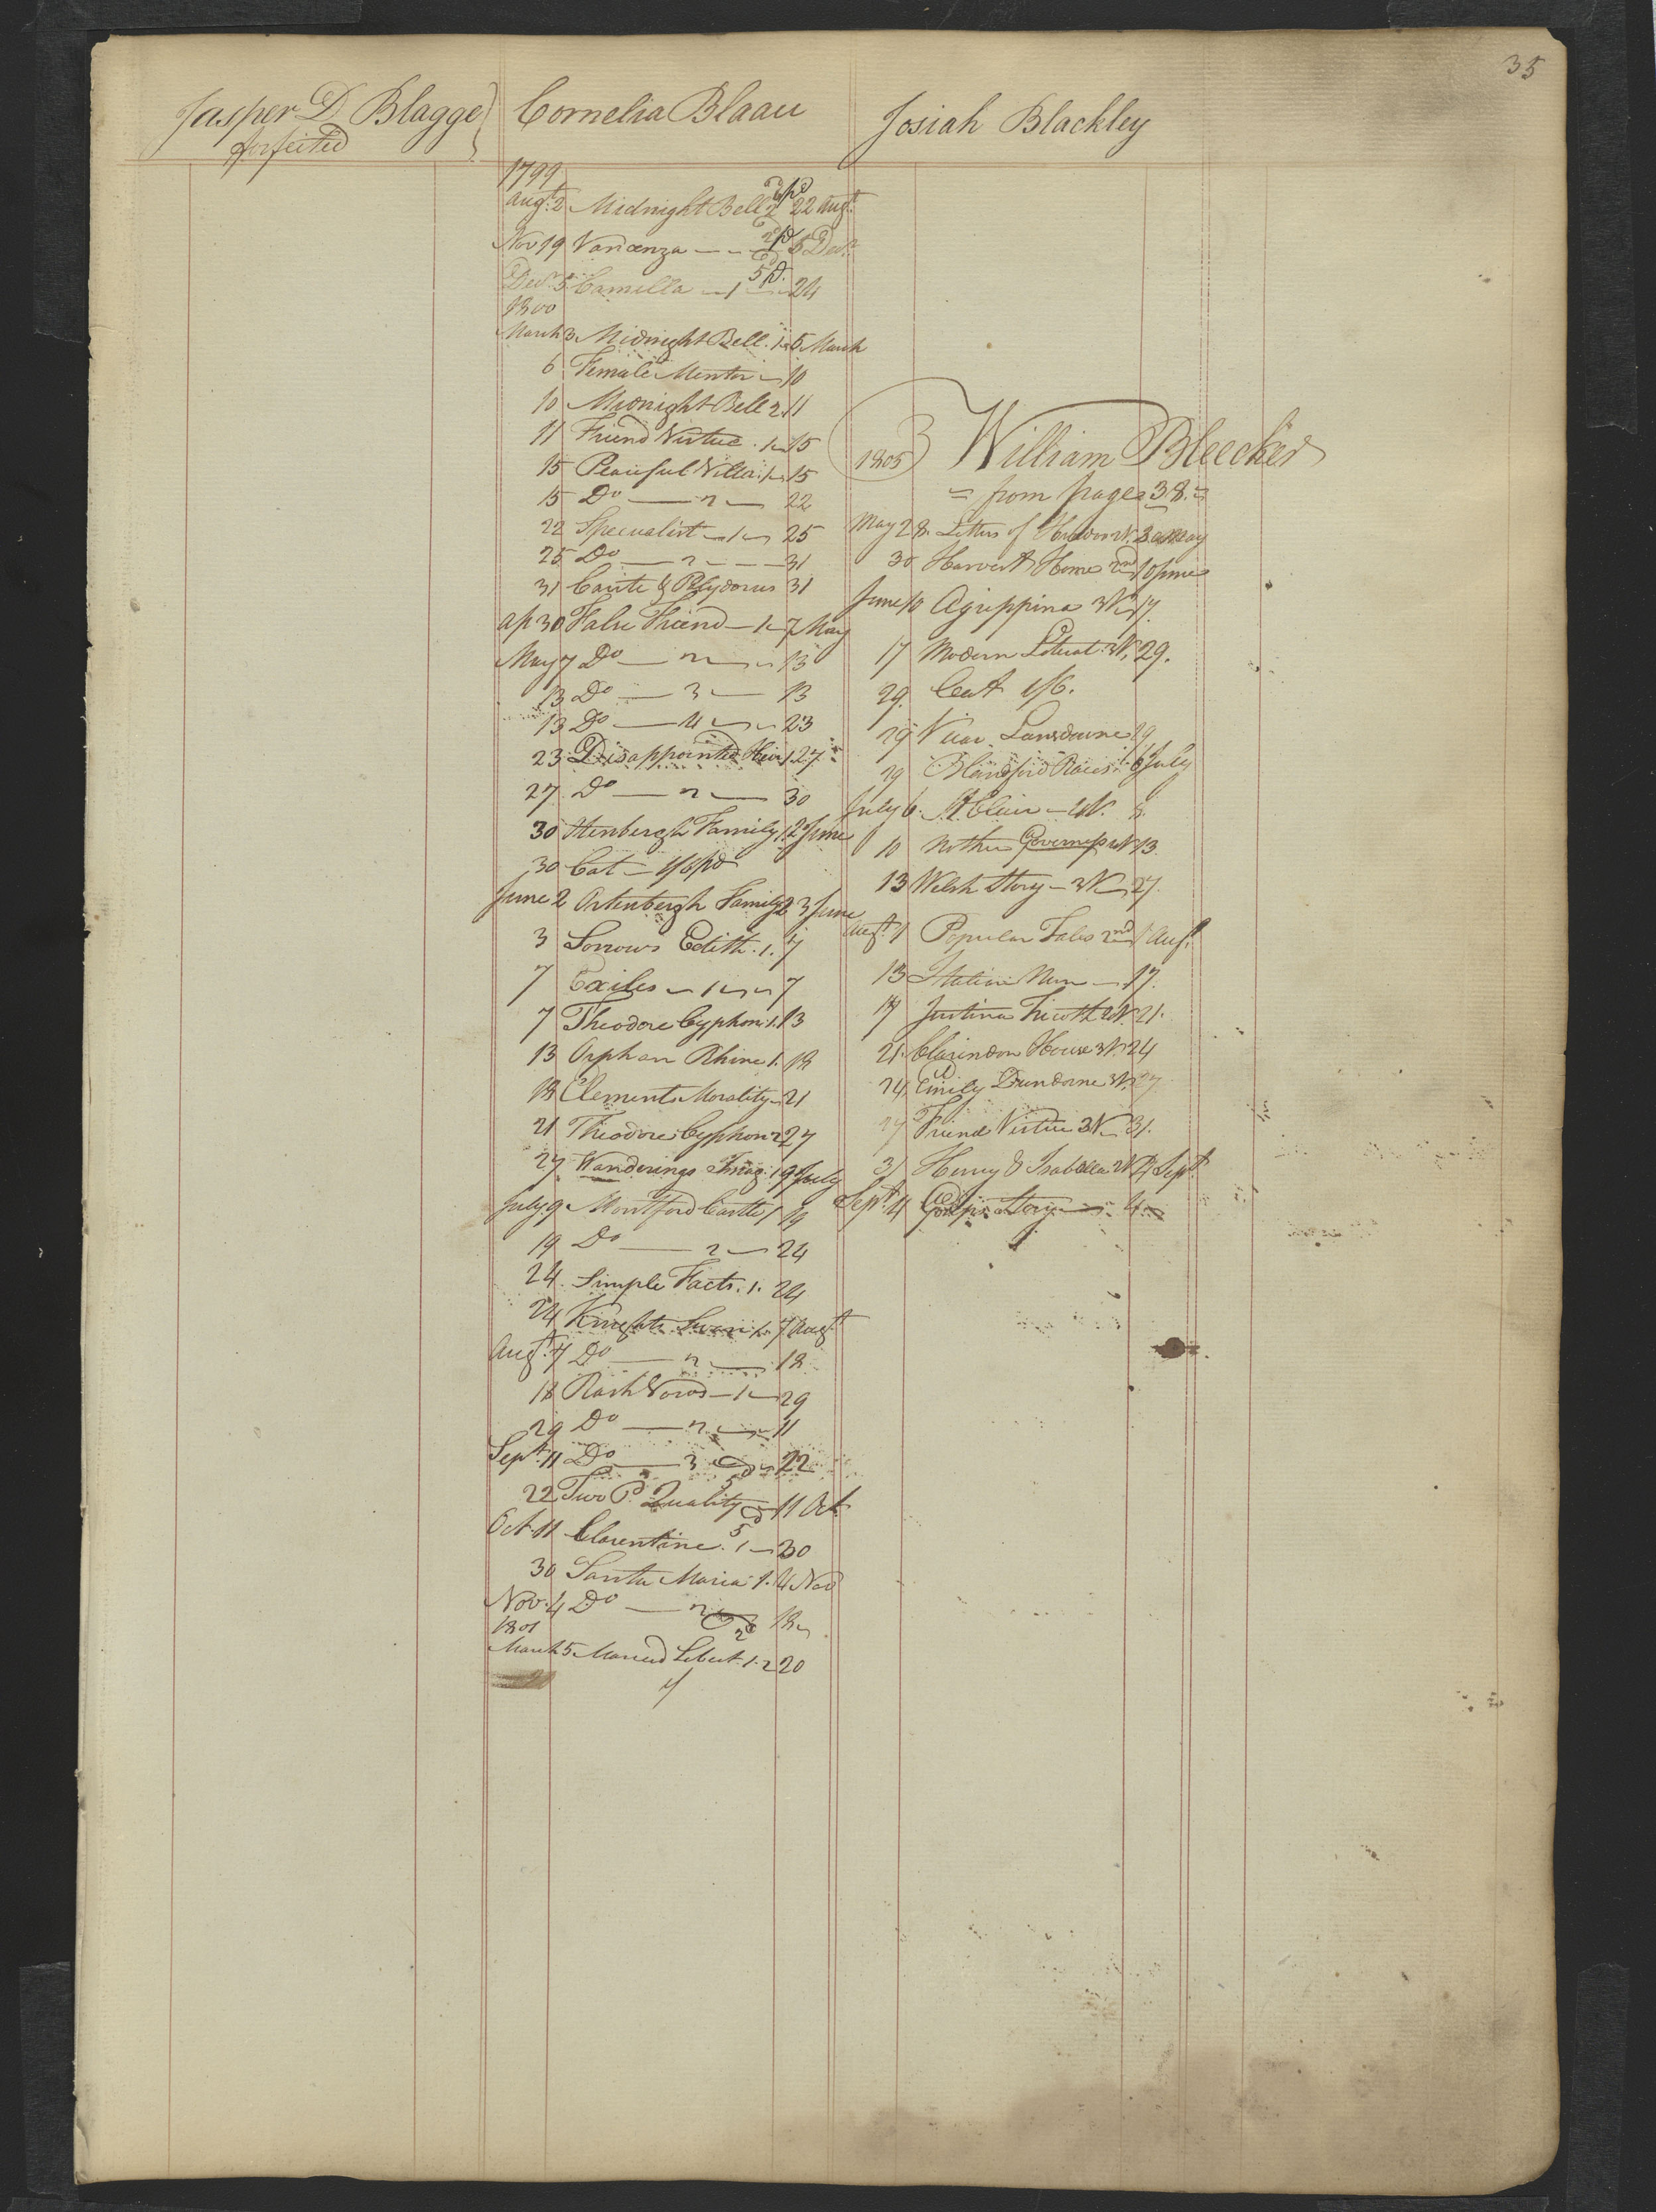 35
Jasper D Blagge
forfeited
Cornelia Blaau
1799
Augt. 2 Midnight Bell 2 6/pd 22 Augt.
Nov 19 Vancenza — 2/pd 5 Decr.
Decr. 5 Camilla — 1 5/pd. 24
1800
March 3 Midnight Bell. 1 5 March
6 Female Mentor — 10
10 Midnight Bell 2 11
11 Friend Virtue. 1 — 15
15 Peaceful Villa. 1 — 15
15 Do — 2 — 22
22 Specualist — 1 — 25
25 Do — 2 — 31
31 Carite & Polydorus 31
Ap 30 False Friend — 1 — 7 May
May 7 Do — 2 — 13
13 Do — 3 — 13
13 Do — 4 — 23
23 Disappointed Heir 1. 27
27 Do — 2 — 30
30 Stenbergh Family 1. 2 June
30 Cat — 1/6 pd
June 2 Ortenbergh Family 2 3 June
3 Sorrows Edith. 1. 7
7 Exiles — 1 — 7
7 Theodore Cyphon. 1. 13
13 Orphan Rhine 1. 18
18 Elements Morality — 21
21 Theodore Cyphon 2 27
27 Wanderings Imag. 1 9 July
July 9 Montford Castle 1 19
19 Do — 2 — 24
24. Simple Facts. 1. 24
24 Knights Swan 1. 7 Augt
Augt. 7 Do — 2 — 18
18 Rash Vows — 1 — 29
29 Do — 2 — 11
Sept. 11 Do — 3 — 22
22 Two P. Quality 5 — 11 Oct
Oct. 11 Clarentine. 5 1 — 30
30 Santa Maria 1. 4 Nov
Nov. 4 Do — 2 — 18
1801
March 5 Married Libert. 1. 2 20
Josiah Blackley
1805 William Bleecker
= from page 38. =
May 28. Letters of 2 V. 30 May
30 Harvest Home 2nd 10 June
June 10 Agrippina 3V — 17.
17 Modern Literat. 3V. 29.
29. Cat 1/6.
29 Vicar Lansdowne 29
29 Blandford Races. 6 July
July 6. St Clair — 2V. 8.
10 Mother Governess 2V 13.
13 Welsh Story — 3V — 27.
Augt. 1 Popular Tales 2nd 1 Augt.
13 Italian Nun — 17.
17 Justina 2V. 21.
21. Clarindon House 3V. 24
24 Emily Dundorne 3V. 27
27 Friend Virtue 3V — 31.
31 Henry & Isabella 2V 4 Sept.
Sept. 4 Gossips Story — 4